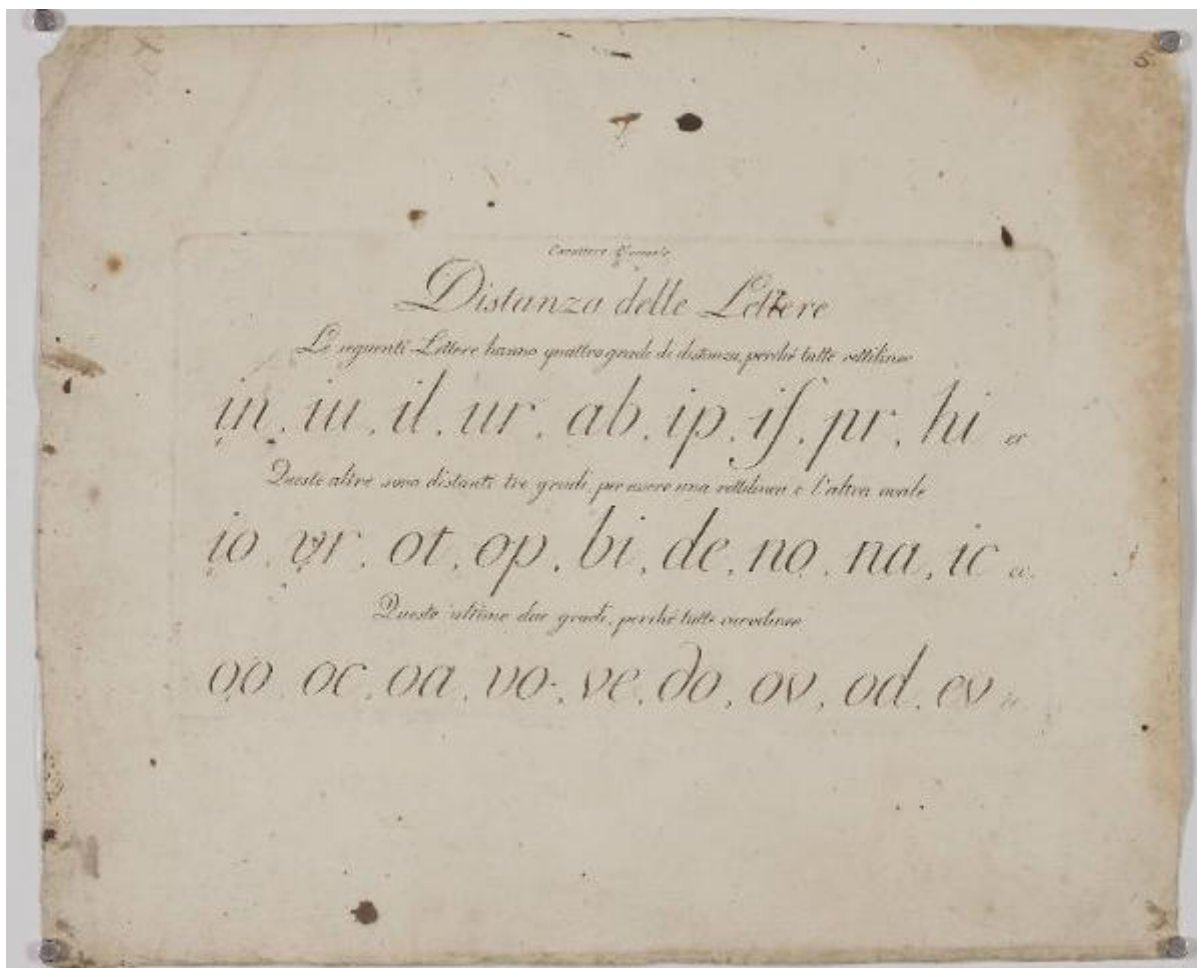 5.
Carattere
Distanza delle Lettere
Le seguenti Lettere hanno quattro gradi di distanza, perché tutte rettilinee
in, iu, il, ur, ab, ip, iſ, pr, hi ec
Queste altre sono distanti tre gradi, per essere una rettilinea e l'altra ovale
io, vr, ot, op, bi, de, no, na, ic ec.
Queste ultime due gradi, perché tutte curvilinee
oo, oc, oa, vo, ve, do, ov, od, ev ec.